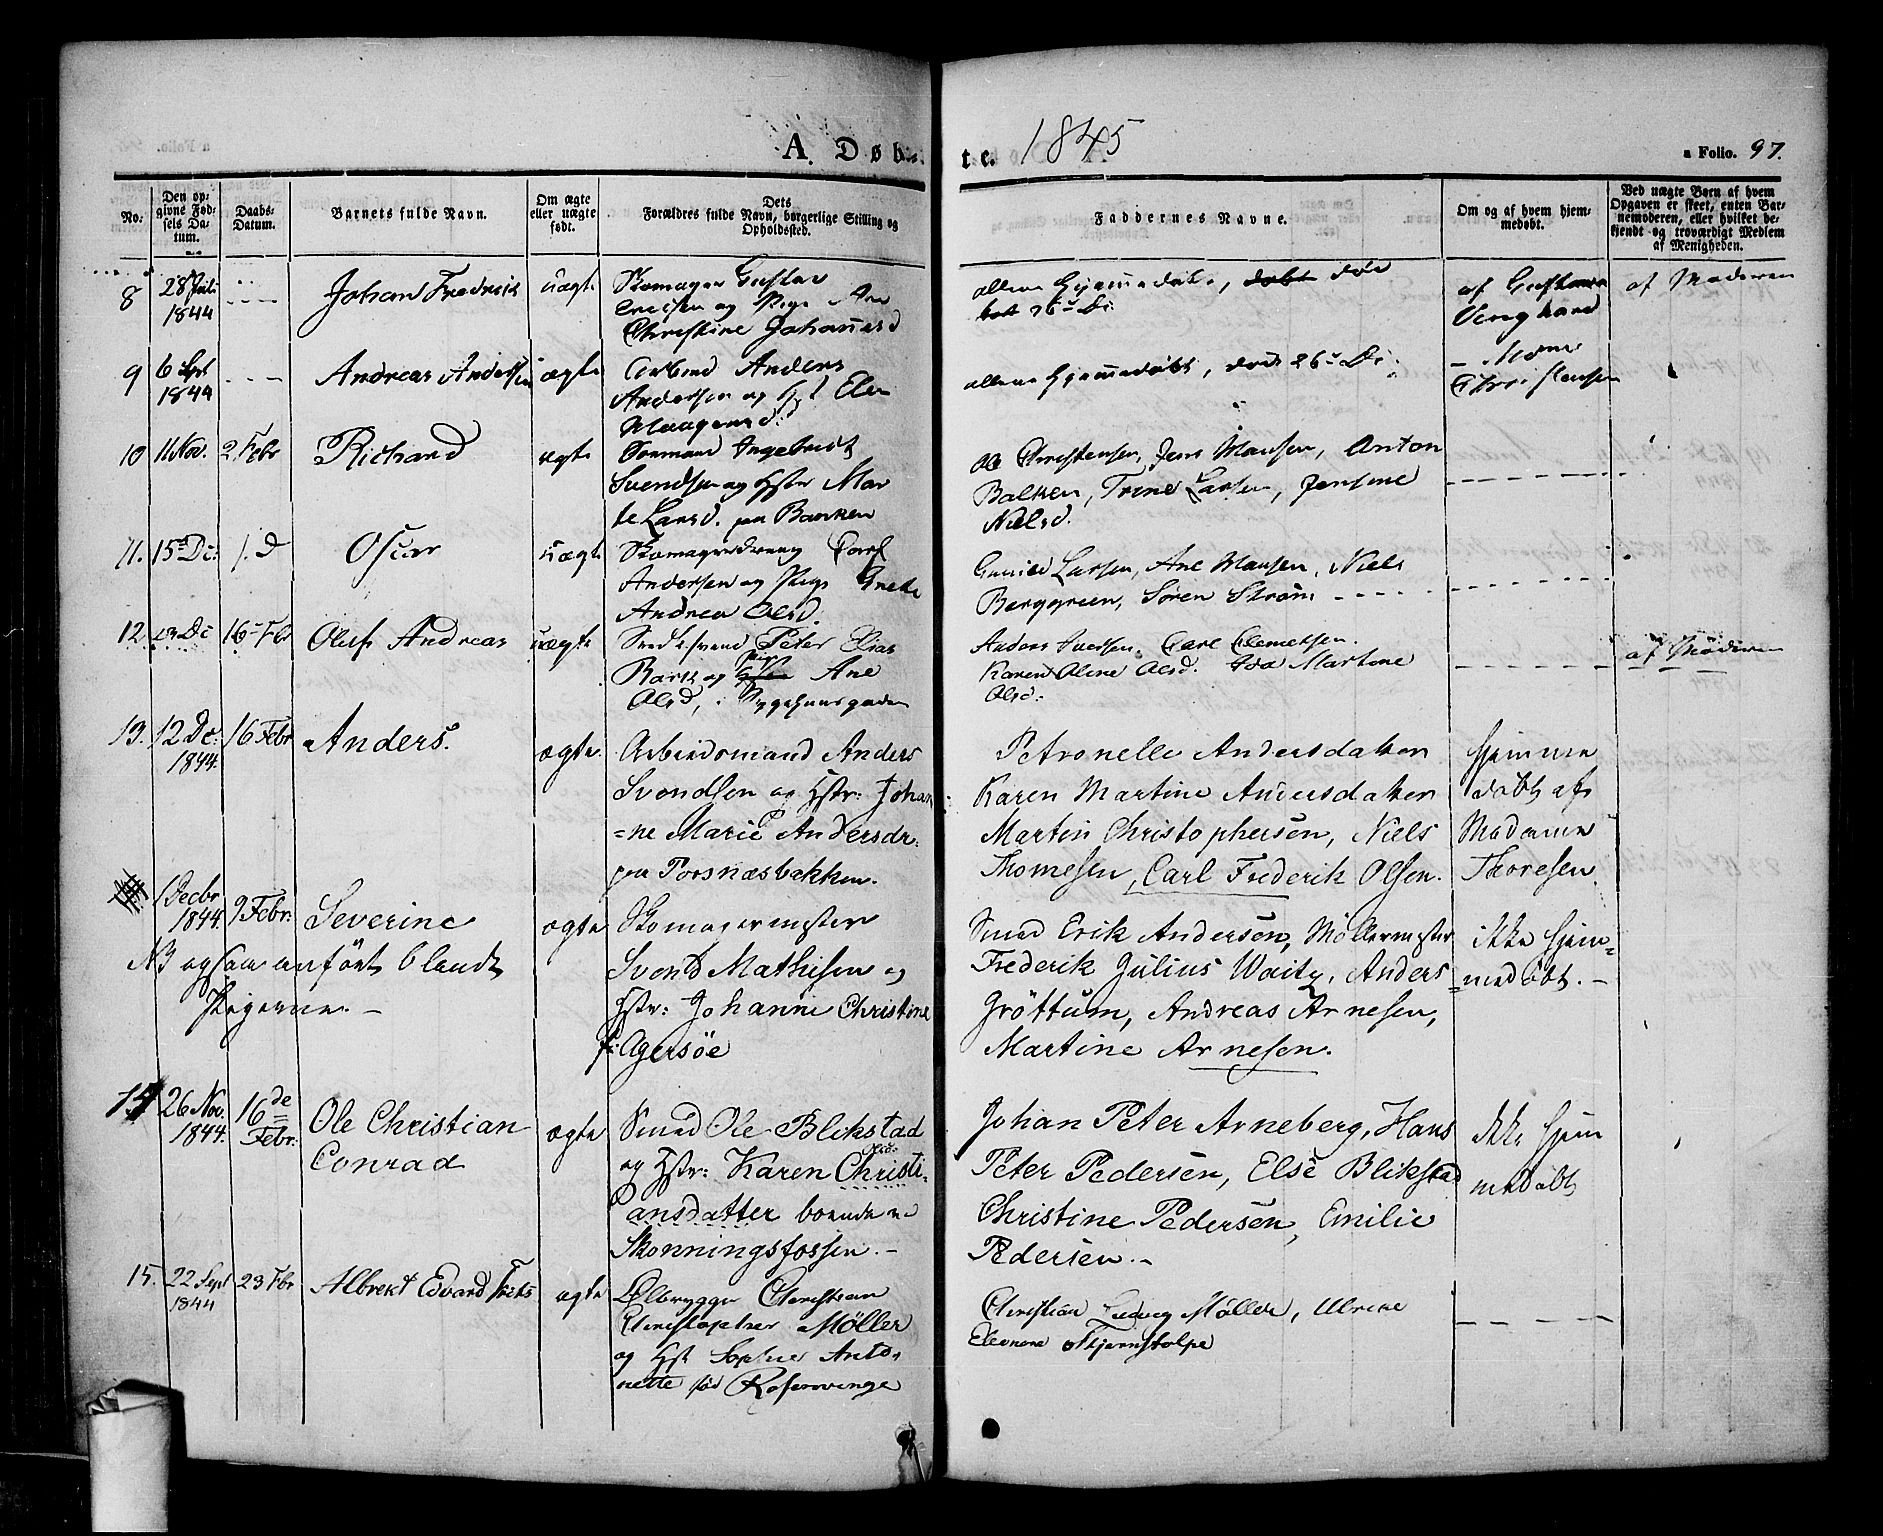 A. Døb-
te. 1845
a Folio. 97.
No:
Den op-
givne Fød-
sels Da-
tum.
Daabs-
Datum.
Barnets fulde Navn.
Om ægte
eller uægte
født.
Dets
Forældres fulde Navn, borgerlige Stilling og
Opholdssted.
Faddernes Navne.
Om og af hvem hjem-
medøbt.
Ved uægte Børn af hvem
Opgaven er skeet, enten Bar-
nemoderen, eller hvilket be-
kjendt og troværdigt Medlem
af Menigheden.
8 28 1844 Johan Fredrick uægte Skomager Gustav
og Pige Ane
Christine Johannesd
allene Hjemmedøbt, døbt død
af
af Moderen
9 6 Sept 1844 Andreas Andersen ægte Arbmd Anders
Andersen og Hst Elen
Haagensd:
allene Hjemmedøbt, død 26 Dc:
Christensen
10 11 Nov. 2 Febr Richard ægte Ingebret
Svendsen og Hstr Mar
te Larsd. paa Bakken
Ole Christensen, Jens Hansen, Anton
Balken, Trine Larsen, Jensine
Nielsd.
11. 15 Dc: 1. D Oscar uægte Skomagerdreng
Andersen og Pige Grete
Andrea Olsd.
Gunild Larsen, Ane Hansen, Niels
Berggreen, Søren Strøm
12. 23 Dc 16 Febr Oluf Andreas uægte Peter Elias
og Pige Ane
Olsd, i
Anders Iversen. Carl Clemetsen.
Karen Oline Olsd. Ida Martine
Olsd:
af Moderen
13. 12 Dc: 1844. 16 Febr Anders. ægte. Arbeidsmand Anders
Svendsen og Hstr: Johan
=ne Marie Andersdr:
paa Porsnæsbakken.
Petronelle Andersdatter
Karen Martine Andersdatter
Martin Christophersen, Niels
Thomesen, Carl Frederik Olsen.
hjemme
døbt af
Madame
Thoresen.
1 Decbr 1844. 9 Febr: Severine ægte Skomagermester
Svend Mathisen og
Hstr: Johanne Christine
f: Agersøe
NB ogsaa anført blandt
Pigerne. –
Smed Erik Andersen, Møllermester
Frederik Julius Waitz, Anders
Gröttum, Andreas Arnesen,
Martine Arnesen.
ikke hjem-
=medøbt. –
14 26 Nov. 1844. 16de Febr: Ole Christian
Conrad
ægte Smed Ole Blikstad
og Hstr: Karen Christi-
Olsd:
ansdatter boende ve
Skonningsfossen. –
Johan Peter Arneberg, Hans
Peter Pedersen, Else Blikstad
Christine Pedersen, Emilie
Pedersen. –
ikke hjem
medøbt
15. 22 Sept 1844 23 Fbr Albrekt Edvard Frits ægte Ølbrygger Christian
Christopher Møller
og Hst Sophie Anto-
nette fød Rosenvinge
Christian Ludvig Møller, Ulrike
Eleonore Hjernstolpe